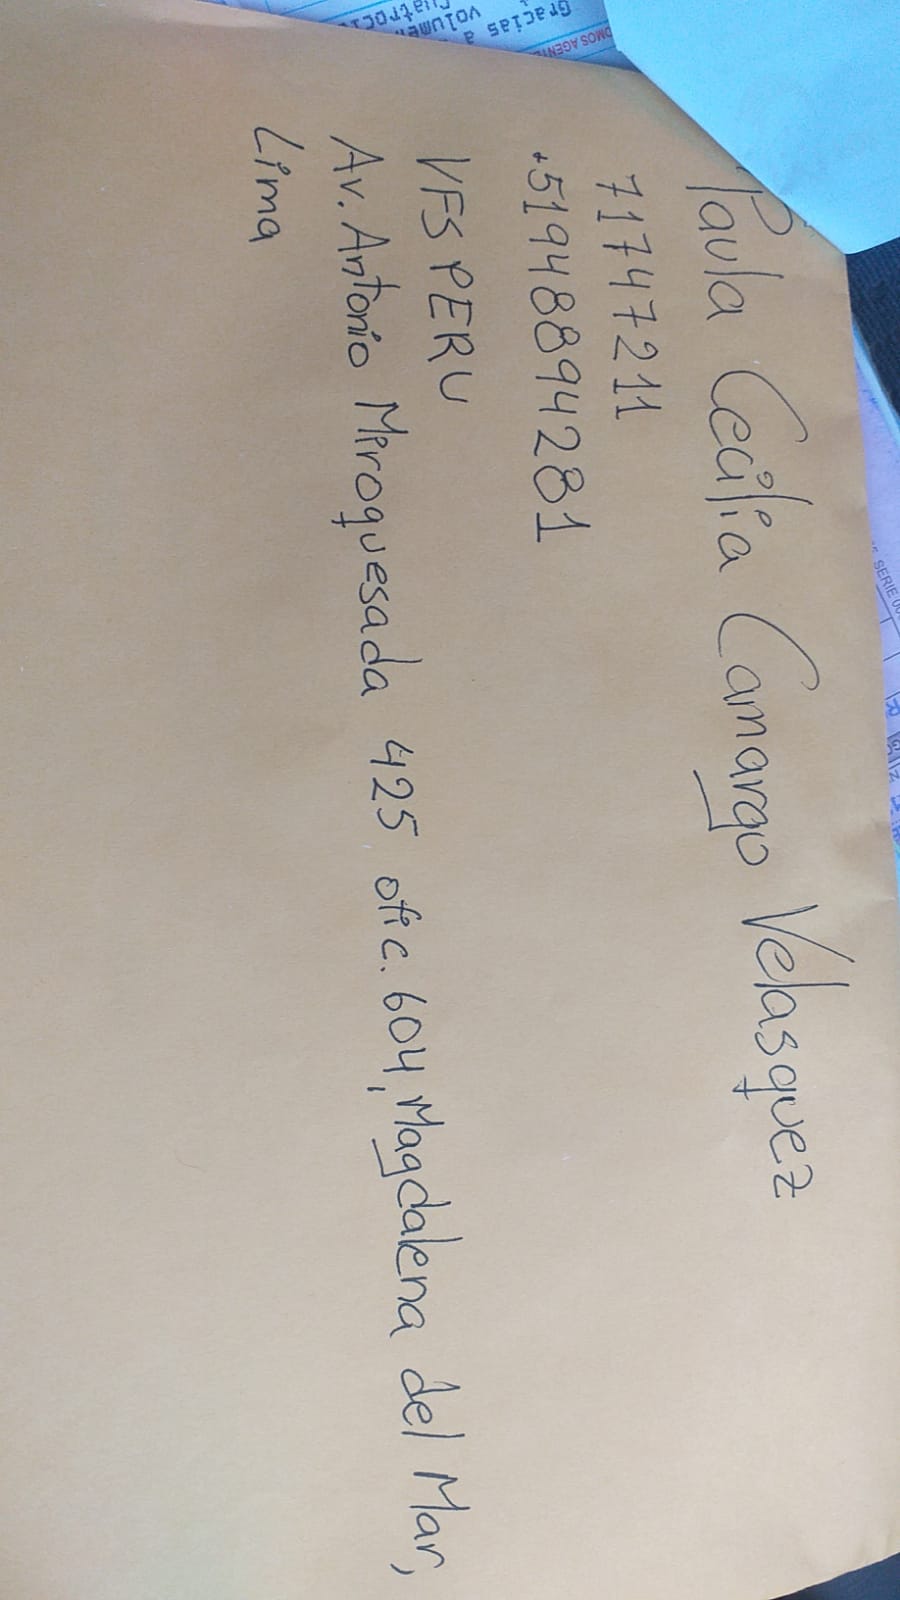 Paula Cecilia Camargo Velasquez
71747211
+51948894281
VFS PERU
Av. Antonio Miroquesada 425 ofic. 604, Magdalena del Mar,
Lima
Gracias a
volumen
OMOS AGENTE
SERIE 00